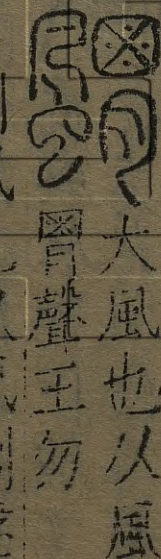 大風也从風
胃聲王勿